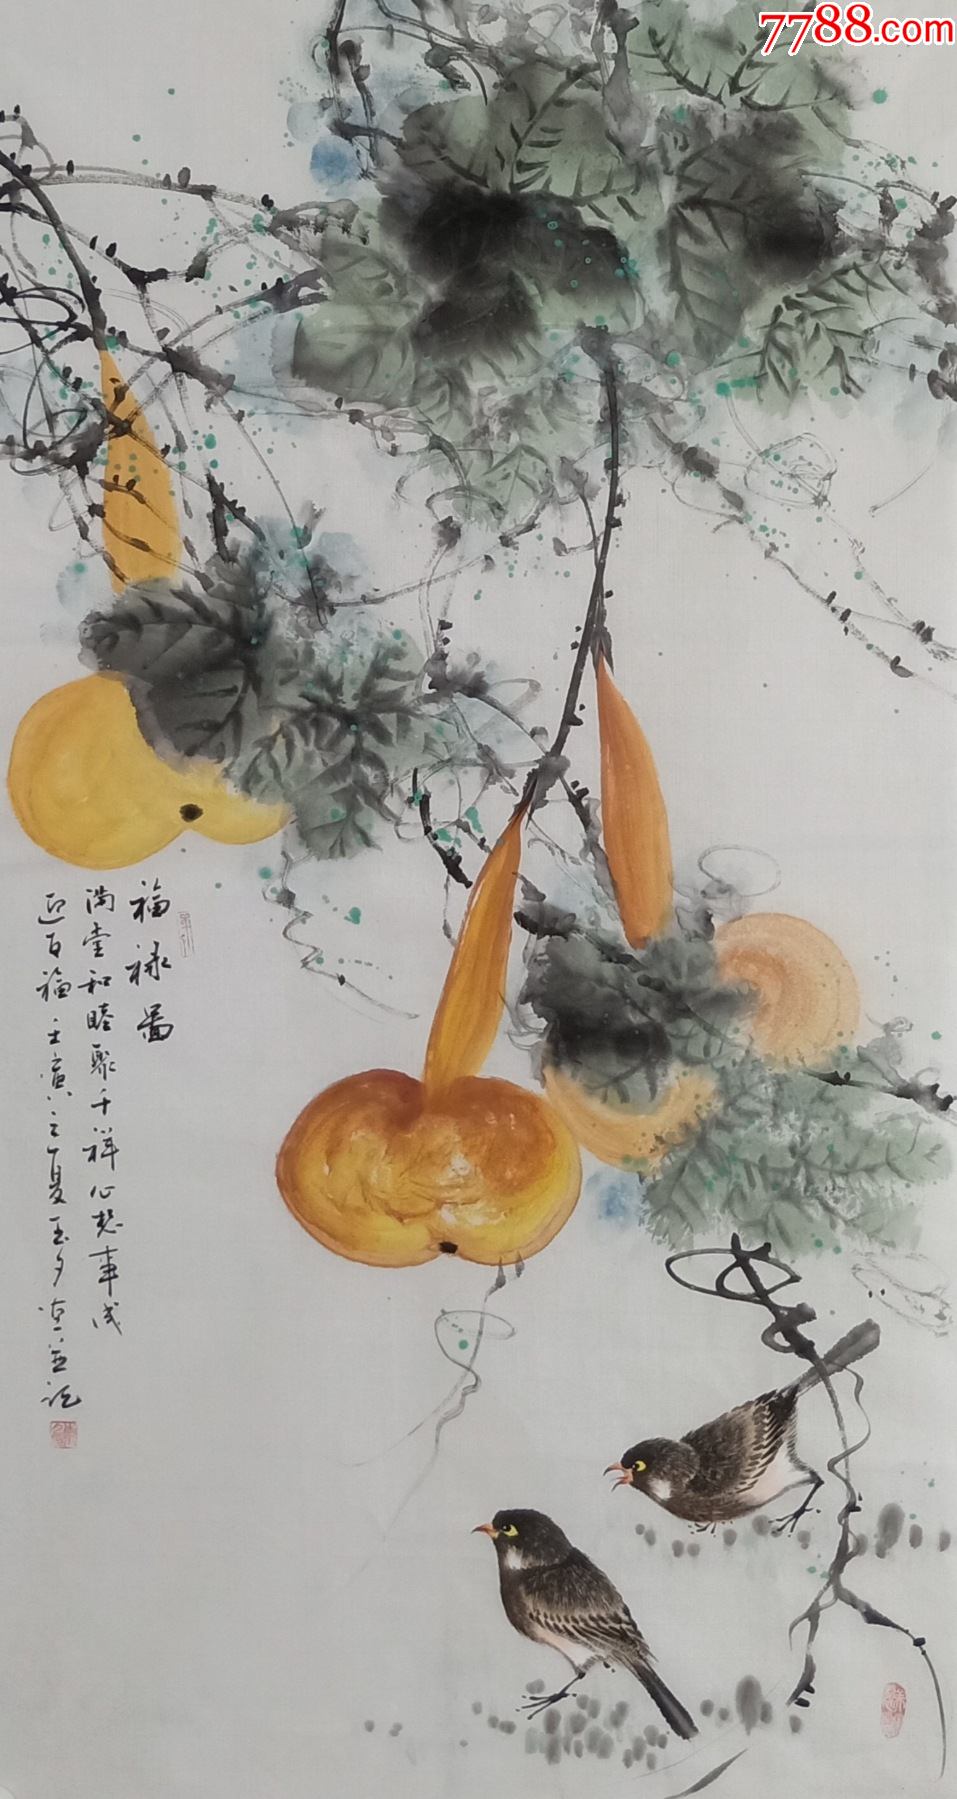 7788.com
福禄图
满堂和睦聚千祥心想事成
迎百福壬寅之夏玉夕